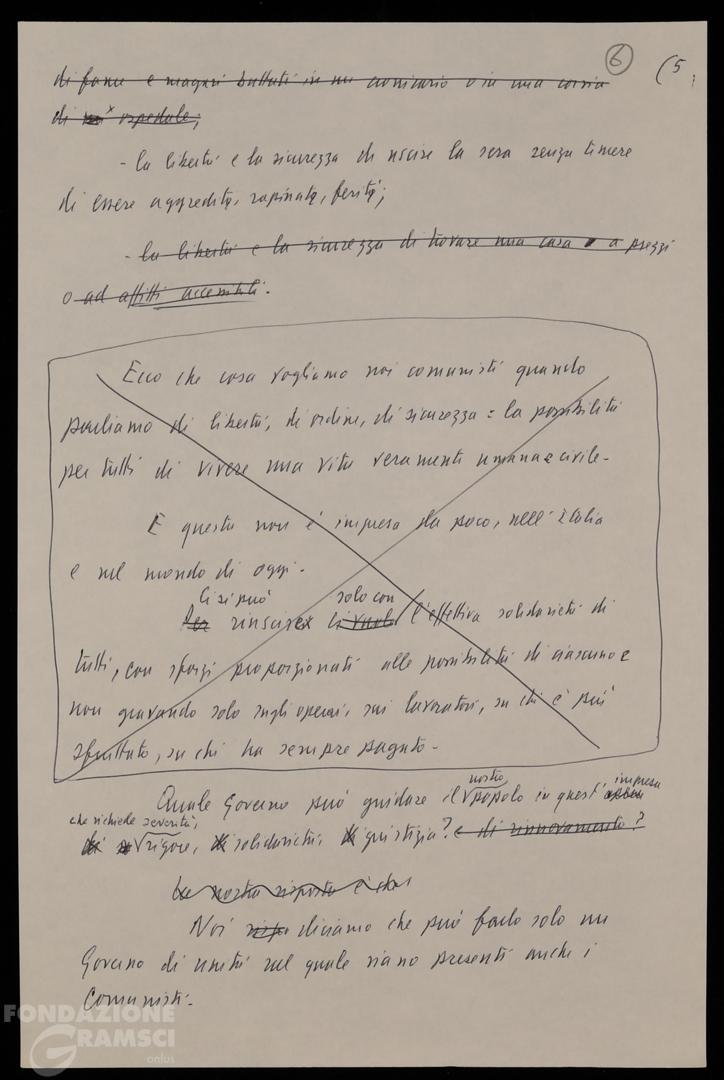 6 (5
di fame e magari buttati in un cronicario o in una corsia
di un ospedale;
- la libertà e la sicurezza di uscire la sera senza timere
di essere aggredite, rapinate, ferite;
- la libertà e la sicurezza di trovare una casa a prezzi
o ad affitti accessibili.
Ecco che cosa vogliamo noi comunisti quando
parliamo di libertà, di ordine, di sicurezza: la possibilità
per tutti di vivere una vita veramente umana e civile.
E questa non è impresa da poco, nell'Italia
e nel mondo di oggi.
Ci si può solo con
Per riuscire ci vuole l'effettiva solidarietà di
tutti, con sforzi proporzionati alle possibilità di ciascuno e
non gravando solo sugli operai, sui lavoratori, su chi è più
sfruttato, su chi ha sempre pagato.
nostro impresa
Quale Governo può guidare il popolo in quest'
che richiede severità,
di rigore, solidarietà, giustizia? e di rinnovamento?
La nostra risposta è che
Noi diciamo che può farlo solo un
Governo di unità nel quale siano presenti anche i
Comunisti.
FONDAZIONE
GRAMSCI
onlus